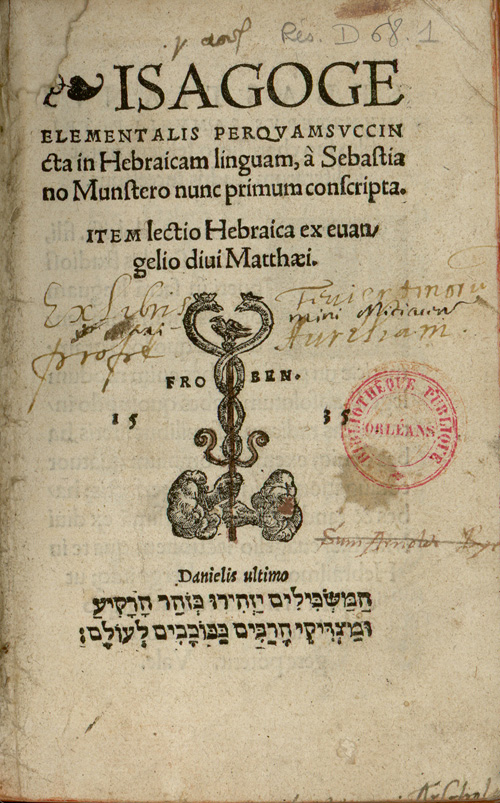 Res. D 68. 1
ISAGOGE
ELEMENTALIS PERQVAMSVCCIN
cta in Hebraicam linguam, à Sebastia
no Munstero nunc primum conscripta.
ITEM lectio Hebraica ex euan,
gelio diui Matthæi.
Ex Libris
FRO BEN.
15 35
BIBLIOTHÈQUE PUBLIQUE
ORLÉANS
Danielis ultimo
הַמַּשְׂכִּילִים יַזְהִירוּ כְּזֹהַר הָרָקִיעַ
וּמַצְדִּיקֵי הָרַבִּים כַּכּוֹכָבִים לְעוֹלָם: